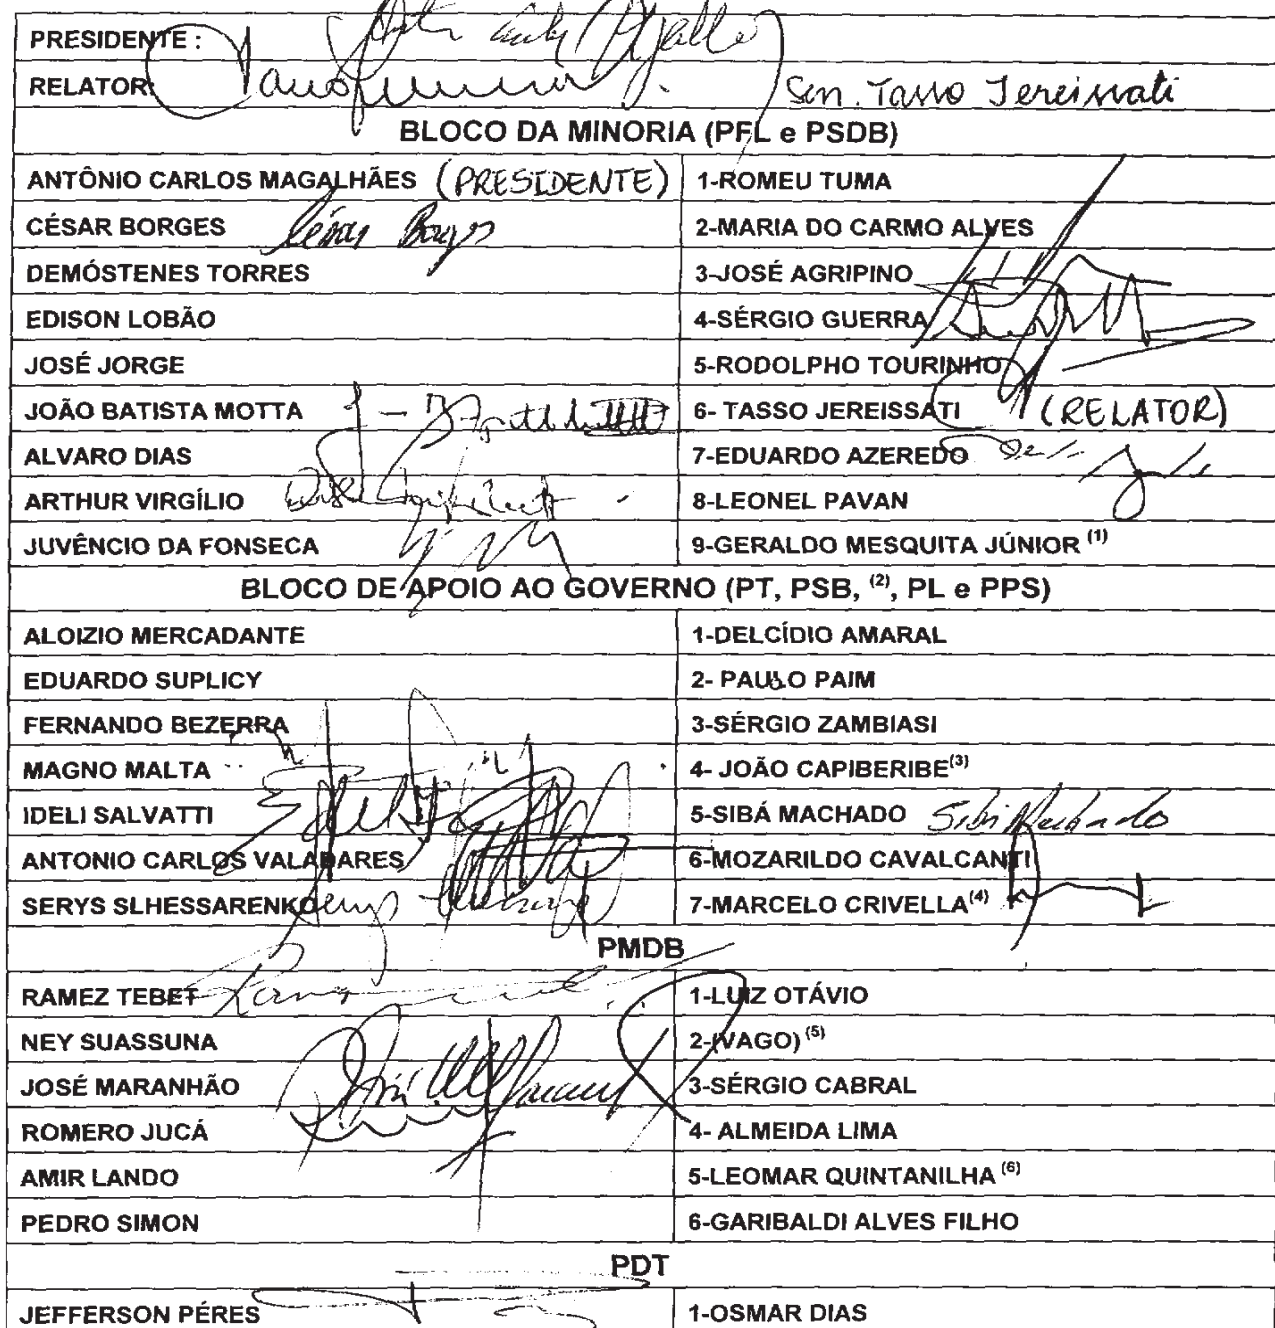 PRESIDENTE :
RELATOR: Sen. Tasso Jereissati
BLOCO DA MINORIA (PFL e PSDB)
ANTÔNIO CARLOS MAGALHÃES (PRESIDENTE) 1-ROMEU TUMA
CÉSAR BORGES César Borges 2-MARIA DO CARMO ALVES
DEMÓSTENES TORRES 3-JOSÉ AGRIPINO
EDISON LOBÃO 4-SÉRGIO GUERRA
JOSÉ JORGE 5-RODOLPHO TOURINHO
JOÃO BATISTA MOTTA 6- TASSO JEREISSATI (RELATOR)
ALVARO DIAS 7-EDUARDO AZEREDO
ARTHUR VIRGÍLIO 8-LEONEL PAVAN
JUVÊNCIO DA FONSECA 9-GERALDO MESQUITA JÚNIOR (1)
BLOCO DE APOIO AO GOVERNO (PT, PSB, (2), PL e PPS)
ALOIZIO MERCADANTE 1-DELCÍDIO AMARAL
EDUARDO SUPLICY 2- PAULO PAIM
FERNANDO BEZERRA 3-SÉRGIO ZAMBIASI
MAGNO MALTA 4- JOÃO CAPIBERIBE(3)
IDELI SALVATTI 5-SIBÁ MACHADO Sibá Machado
ANTONIO CARLOS VALADARES 6-MOZARILDO CAVALCANTI
SERYS SLHESSARENKO 7-MARCELO CRIVELLA(4)
PMDB
RAMEZ TEBET 1-LUIZ OTÁVIO
NEY SUASSUNA 2-(VAGO) (5)
JOSÉ MARANHÃO 3-SÉRGIO CABRAL
ROMERO JUCÁ 4- ALMEIDA LIMA
AMIR LANDO 5-LEOMAR QUINTANILHA (6)
PEDRO SIMON 6-GARIBALDI ALVES FILHO
PDT
JEFFERSON PÉRES 1-OSMAR DIAS